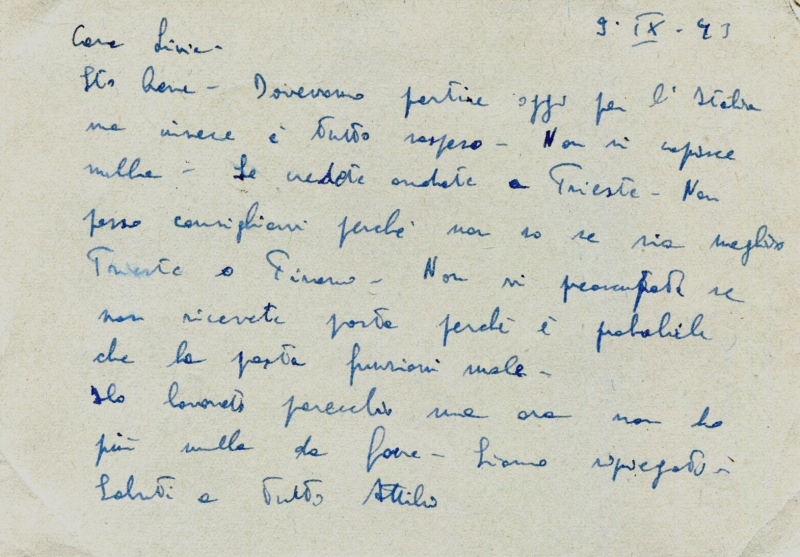 9. IX - 43
Cara Livia -
Sto bene - Dovevamo partire oggi per l'Italia
ma invece è tutto sospeso - Non si capisce
nulla - Se credete andate a Trieste - Non
posso consigliarvi perché non so se sia meglio
Trieste o Fiume - Non vi preoccupate se
non ricevete posta perché è probabile
che la posta funzioni male -
Ho lavorato parecchio ma ora non ho
più nulla da fare - Siamo
Saluti a tutto Attilio